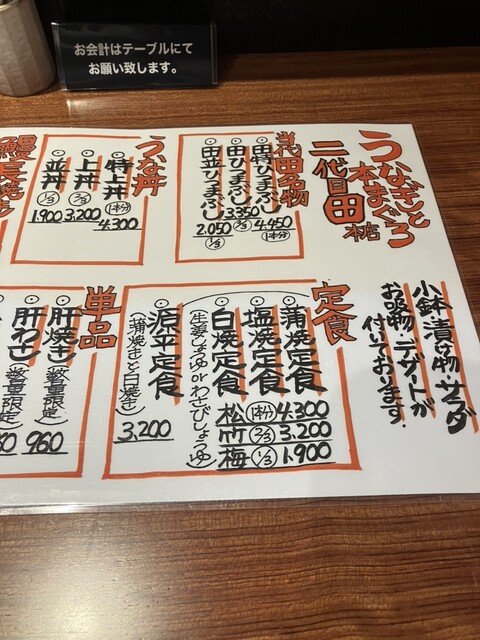 お会計はテーブルにて
お願い致します。
うなぎと
本まぐろ
二代目 田 本店
小鉢 漬け物 サラダ
お吸物 デザートが
付いております。
当代田名物
田特ひつまぶし
4.450
(1本分)
田ひつまぶし
3.350
2/3
田並ひつまぶし
2.050
1/3
うな丼
特上丼
(1本分)
4.300
上丼
2/3
3.200
並丼
1/3
1.900
定食
蒲焼定食
塩焼定食
白焼定食
(生姜しょうゆorわさびしょうゆ)
松 (1本分) 4.300
竹 2/3 3.200
梅 1/3 1.900
源平定食
(蒲焼きと白焼き)
3.200
単品
肝焼き(数量限定)
960
肝わさ(数量限定)